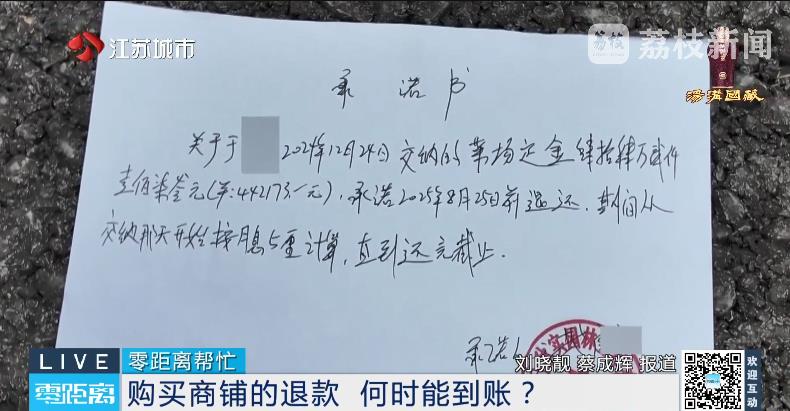 江苏城市
荔枝新闻
荔枝
汤沟國藏
承诺书
关于于 2024年12月24日交纳的菜场定金肆拾肆万贰仟
壹佰柒叁元(¥:442173.-元),承诺2025年8月25日前退还.期间从
交纳那天开始按月息5厘计算,直到还完截止.
承诺人
LIVE
零距离帮忙
刘晓靓 蔡成辉 报道
零距离
购买商铺的退款 何时能到账?
欢迎互动